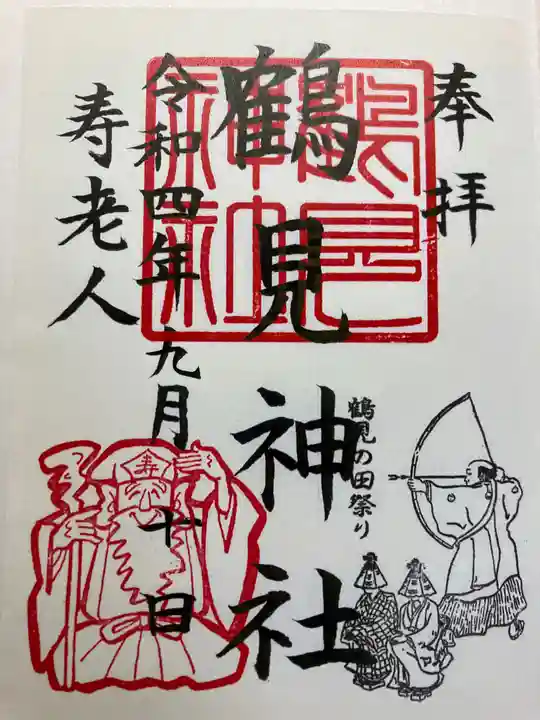 奉拝
鶴見神社
鶴見神社
鶴見の田祭り
令和四年九月十日
寿老人
寿